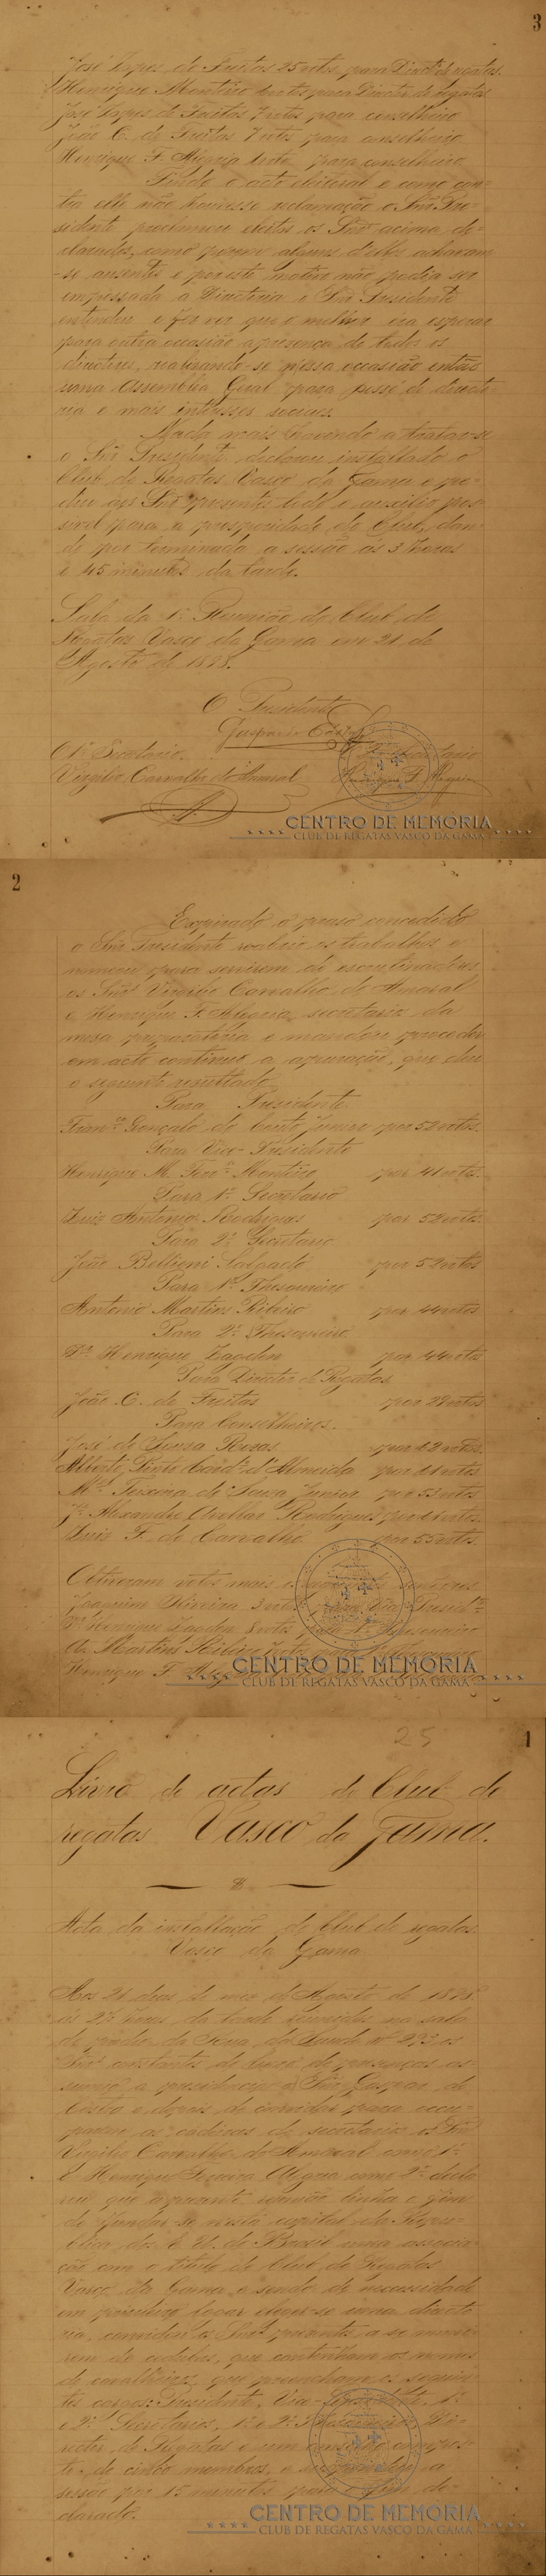 3
José Lopes de Freitas 25 votos para Director de regatas.
Henrique Monteiro votos para Director de regatas
José Lopes de Freitas 7 votos para conselheiro
João C. de Freitas 7 votos para conselheiro
Henrique F. Alegria 1 voto para conselheiro
Findo o acto eleitoral e como con-
tra elle não houvesse reclamação o Snr. Pre-
sidente proclamou eleitos os Snrs acima de-
clarados, como porem alguns d'elles achavam
-se ausentes e por este motivo não podia ser
empossada a Directoria o Snr Presidente
entendeu e fez ver que o melhor era esperar
para outra occasião a presença de todos os
directores, realizando-se nessa occasião então
uma Assemblea Geral para posse de directo
ria e mais interesses sociaes.
Nada mais havendo a tratar-se
o Snr Presidente declarou installado o
Club de Regatas Vasco da Gama e pe-
diu aos Snrs presentes todo o auxilio pos-
sivel para a prosperidade do Club, dan-
do por terminada a sessão ás 3 horas
e 45 minutos da tarde.
Sala da 1ª Reunião do Club de
Regatas Vasco da Gama em 21 de
Agosto de 1898.
O Presidente
Gaspar de Castro
O 1º Secretario
Virgilio Carvalho do Amaral
CENTRO DE MEMÓRIA
CLUB DE REGATAS VASCO DA GAMA
2
Expirado o praso concedido
o Snr Presidente reabrio os trabalhos e
nomeou para servirem de escrutinadores
os Snrs Virgilio Carvalho do Amaral
e Henrique F. Alegria, secretarios da
mesa preparatoria e mandou proceder
em acto continuo a apuração, que deu
o seguinte resultado
Para Presidente
Franco Gonçalves do Couto junior por 52 votos.
Para Vice-Presidente
Henrique M. Ferra Monteiro por 41 votos.
Para 1º Secretario
Luiz Antonio Rodrigues por 52 votos.
Para 2º Secretario
João Bellieni Salgado por 52 votos
Para 1º Thesoureiro
Antonio Martins Ribeiro por 44 votos
Para 2º Thesoureiro
Henrique Lagden por 44 votos
Para Director de Regatas
João C. de Freitas por 29 votos
Para Conselheiros.
José de Souza Rosas por 42 votos.
Alberto Pinto d'Almeida por votos
Ml. Teixeira de Souza Junior por 53 votos
Jº Alexandre Avellar Rodrigues por votos.
Luiz F. de Carvalho por 55 votos.
Obtiveram votos mais os senhores
Joaquim Oliveira 3 votos para Vice-Preside
Henrique Lagden 8 votos para 1º Thesoureiro
A. Martins Ribeiro 7 votos
Henrique F.
CENTRO DE MEMÓRIA
CLUB DE REGATAS VASCO DA GAMA
25
1
Livro de actas do Club de
regatas Vasco da Gama.
Acta da installação do Club de regatas
Vasco da Gama
Aos 21 dias do mez de Agosto de 1898
ás 2½ horas da tarde reunidos na sala
do predio da Rua da Saude nº 293 os
Snrs constantes do livro de presenças as-
sumio a presidencia o Snr Gaspar de
Castro e depois de convidar para occu-
parem as cadeiras de secretarios os Snrs
Virgilio Carvalho do Amaral como 1º
e Henrique Ferreira Alegria como 2º decla
rou que a presente reunião tinha o fim
de fundar-se nesta capital da Repu-
blica dos E. U. do Brasil uma associa-
ção com o titulo de Club de Regatas
Vasco da Gama e sendo de necessidade
em primeiro logar eleger-se uma directo
ria, convidou os Snrs presentes a se muni-
rem de cedulas, que contenham os nomes
de cavalheiros que preencham os seguin-
tes cargos: Presidente, Vice-Presidente, 1º
e 2º Secretarios, 1º e 2º Thesoureiros, Di-
rector de Regatas e um conselho compos-
to de cinco membros, e suspendeu a
sessão por 15 minutos para o fim de-
clarado.
CENTRO DE MEMÓRIA
CLUB DE REGATAS VASCO DA GAMA